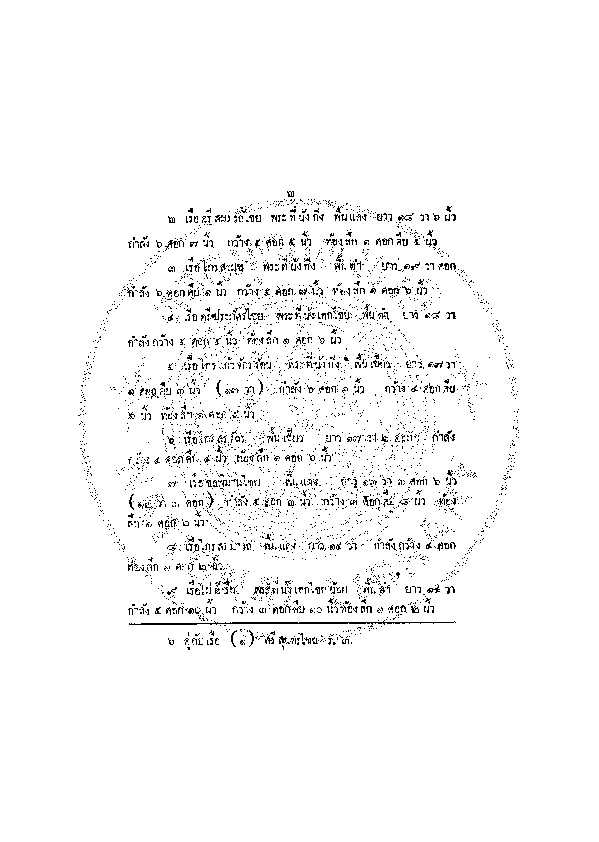 ๒
๒ เรือศรีสมรรถไชย พระที่นั่งกิ่ง พื้นแดง ยาว ๑๘ วา ๖ นิ้ว
กำลัง ๖ ศอก ๗ นิ้ว กว้าง ๕ ศอก ๕ นิ้ว ท้องลึก ๑ ศอกคืบ ๕ นิ้ว
๓ เรือไกรสรมุข พระที่นั่งกิ่ง พื้นดำ ยาว ๑๙ วา ศอก
กำลัง ๖ ศอกคืบ ๑ นิ้ว กว้าง ๕ ศอก ๗ นิ้ว ท้องลึก ๑ ศอก ๖ นิ้ว
๔ เรือศรีประภัศรไชย พระที่นั่งเอกไชย พื้นดำ ยาว ๑๘ วา
กำลังกว้าง ๕ ศอก ๕ นิ้ว ท้องลึก ๑ ศอก ๖ นิ้ว
๕ เรือไกรแก้วจักรรัตน พระที่นั่งกิ่ง พื้นเขียว ยาว ๑๗ วา
๑ ศอกคืบ ๓ นิ้ว (๑๓ วา) กำลัง ๖ ศอก ๑ นิ้ว กว้าง ๔ ศอกคืบ
๒ นิ้ว ท้องลึก ๑ ศอก ๕ นิ้ว
๖ พื้นเขียว ยาว ๑๗ วา ๒ ศอก กำลัง
กว้าง ๕ ศอกคืบ ๕ นิ้ว ท้องลึก ๑ ศอก ๖ นิ้ว
๗ พื้นแดง ยาว ๑๓ วา ๓ ศอก ๖ นิ้ว
(๑๕ วา ๓ ศอก) กำลัง ๕ ศอก ๒ นิ้ว กว้าง ๓ ศอกคืบ ๘ นิ้ว ท้อง
ลึก ๑ ศอก ๒ นิ้ว
๘ พื้นแดง ยาว ๑๕ วา กำลังกว้าง ๔ ศอก
ท้องลึก ๑ ศอก ๒ นิ้ว
๙ พระที่นั่งเอกไชยน้อย พื้นดำ ยาว ๑๕ วา
กำลัง ๕ ศอก ๑๐ นิ้ว กว้าง ๓ ศอกคืบ ๑๐ นิ้ว ท้องลึก ๑ ศอก ๒ นิ้ว
๖ คู่กับเรือ (๑) ศรีสุนทรไชย